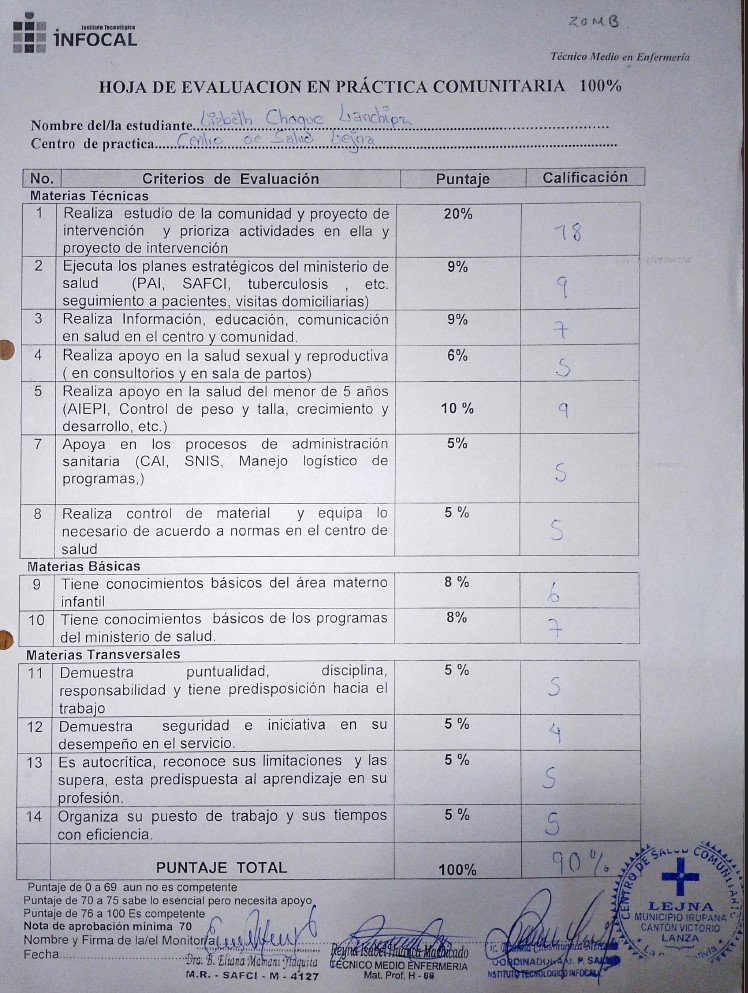 Instituto Tecnológico
INFOCAL
20MB
Técnico Medio en Enfermería
HOJA DE EVALUACION EN PRÁCTICA COMUNITARIA 100%
Nombre del/la estudiante. Lizbeth Choque Lanchipa
Centro de practica..... Centro de Salud Lejna
No. Criterios de Evaluación Puntaje Calificación
Materias Técnicas
1 Realiza estudio de la comunidad y proyecto de 20% 18
intervención y prioriza actividades en ella y
proyecto de intervención
2 Ejecuta los planes estratégicos del ministerio de 9% 9
salud (PAI, SAFCI, tuberculosis , etc.
seguimiento a pacientes, visitas domiciliarias)
3 Realiza Información, educación, comunicación 9% 7
en salud en el centro y comunidad.
4 Realiza apoyo en la salud sexual y reproductiva 6% 5
( en consultorios y en sala de partos)
5 Realiza apoyo en la salud del menor de 5 años 10 % 9
(AIEPI, Control de peso y talla, crecimiento y
desarrollo, etc.)
7 Apoya en los procesos de administración 5% 5
sanitaria (CAI, SNIS, Manejo logístico de
programas,)
8 Realiza control de material y equipa lo 5 % 5
necesario de acuerdo a normas en el centro de
salud
Materias Básicas
9 Tiene conocimientos básicos del área materno 8 % 6
infantil
10 Tiene conocimientos básicos de los programas 8% 7
del ministerio de salud.
Materias Transversales
11 Demuestra puntualidad, disciplina, 5 % 5
responsabilidad y tiene predisposición hacia el
trabajo
12 Demuestra seguridad e iniciativa en su 5 % 4
desempeño en el servicio.
13 Es autocrítica, reconoce sus limitaciones y las 5 % 5
supera, esta predispuesta al aprendizaje en su
profesión.
14 Organiza su puesto de trabajo y sus tiempos 5 % 5
con eficiencia.
PUNTAJE TOTAL 100% 90%
Puntaje de 0 a 69 aun no es competente
Puntaje de 70 a 75 sabe lo esencial pero necesita apoyo
Puntaje de 76 a 100 Es competente
Nota de aprobación mínima 70
Nombre y Firma de la/el Monitor/a
Fecha
Dra. B. Eliana Mamani
M.R. - SAFCI - M - 4127
Reyna Isabel Huanca
TÉCNICO MEDIO ENFERMERIA
Mat. Prof. H - 86
INSTITUTO TECNOLOGICO INFOCAL
CENTRO DE SALUD COMUNITARIO
LEJNA
MUNICIPIO IRUPANA
CANTÓN VICTORIO
LANZA